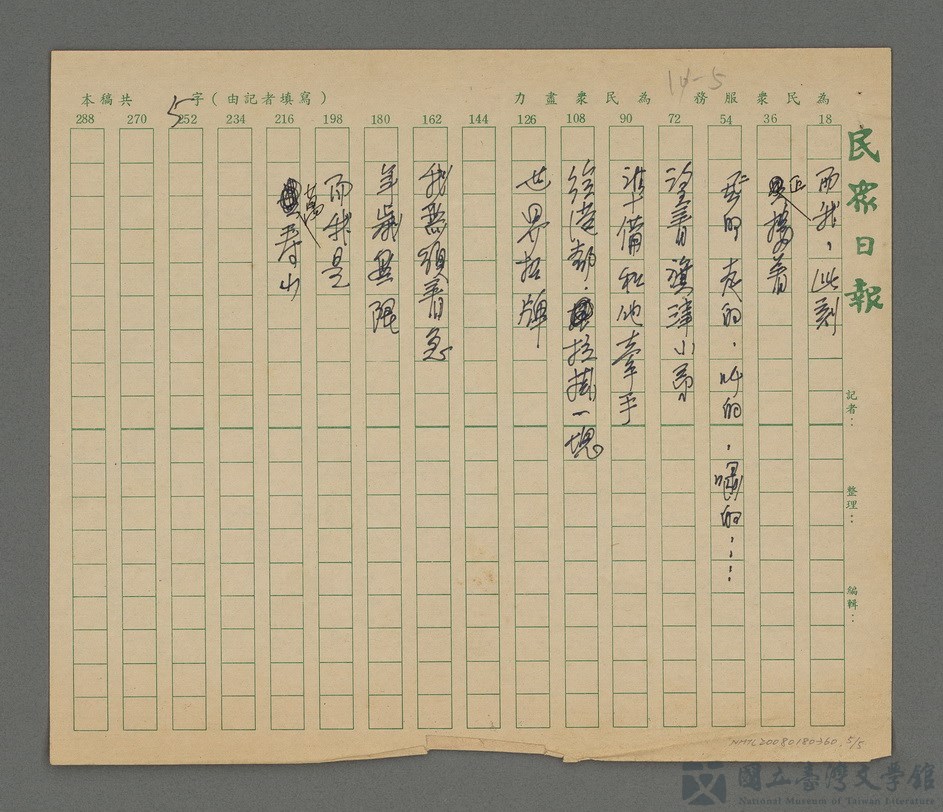 14-5
為民衆服務　為民衆盡力
本稿共 5 字(由記者填寫)
18 36 54 72 90 108 126 144 162 180 198 216 234 252 270 288
民衆日報
記者：
整理：
編輯：
而我，此刻
正着
的，走的，叫的，嘯的……
望着旗津小哥
準備和他牽手
給港都，拉掛一塊
世界招牌
我無須着急
年歲無限
而我是
萬壽山
NMTL20080180360 5/5
國立臺灣文學館
National Museum of Taiwan Literature